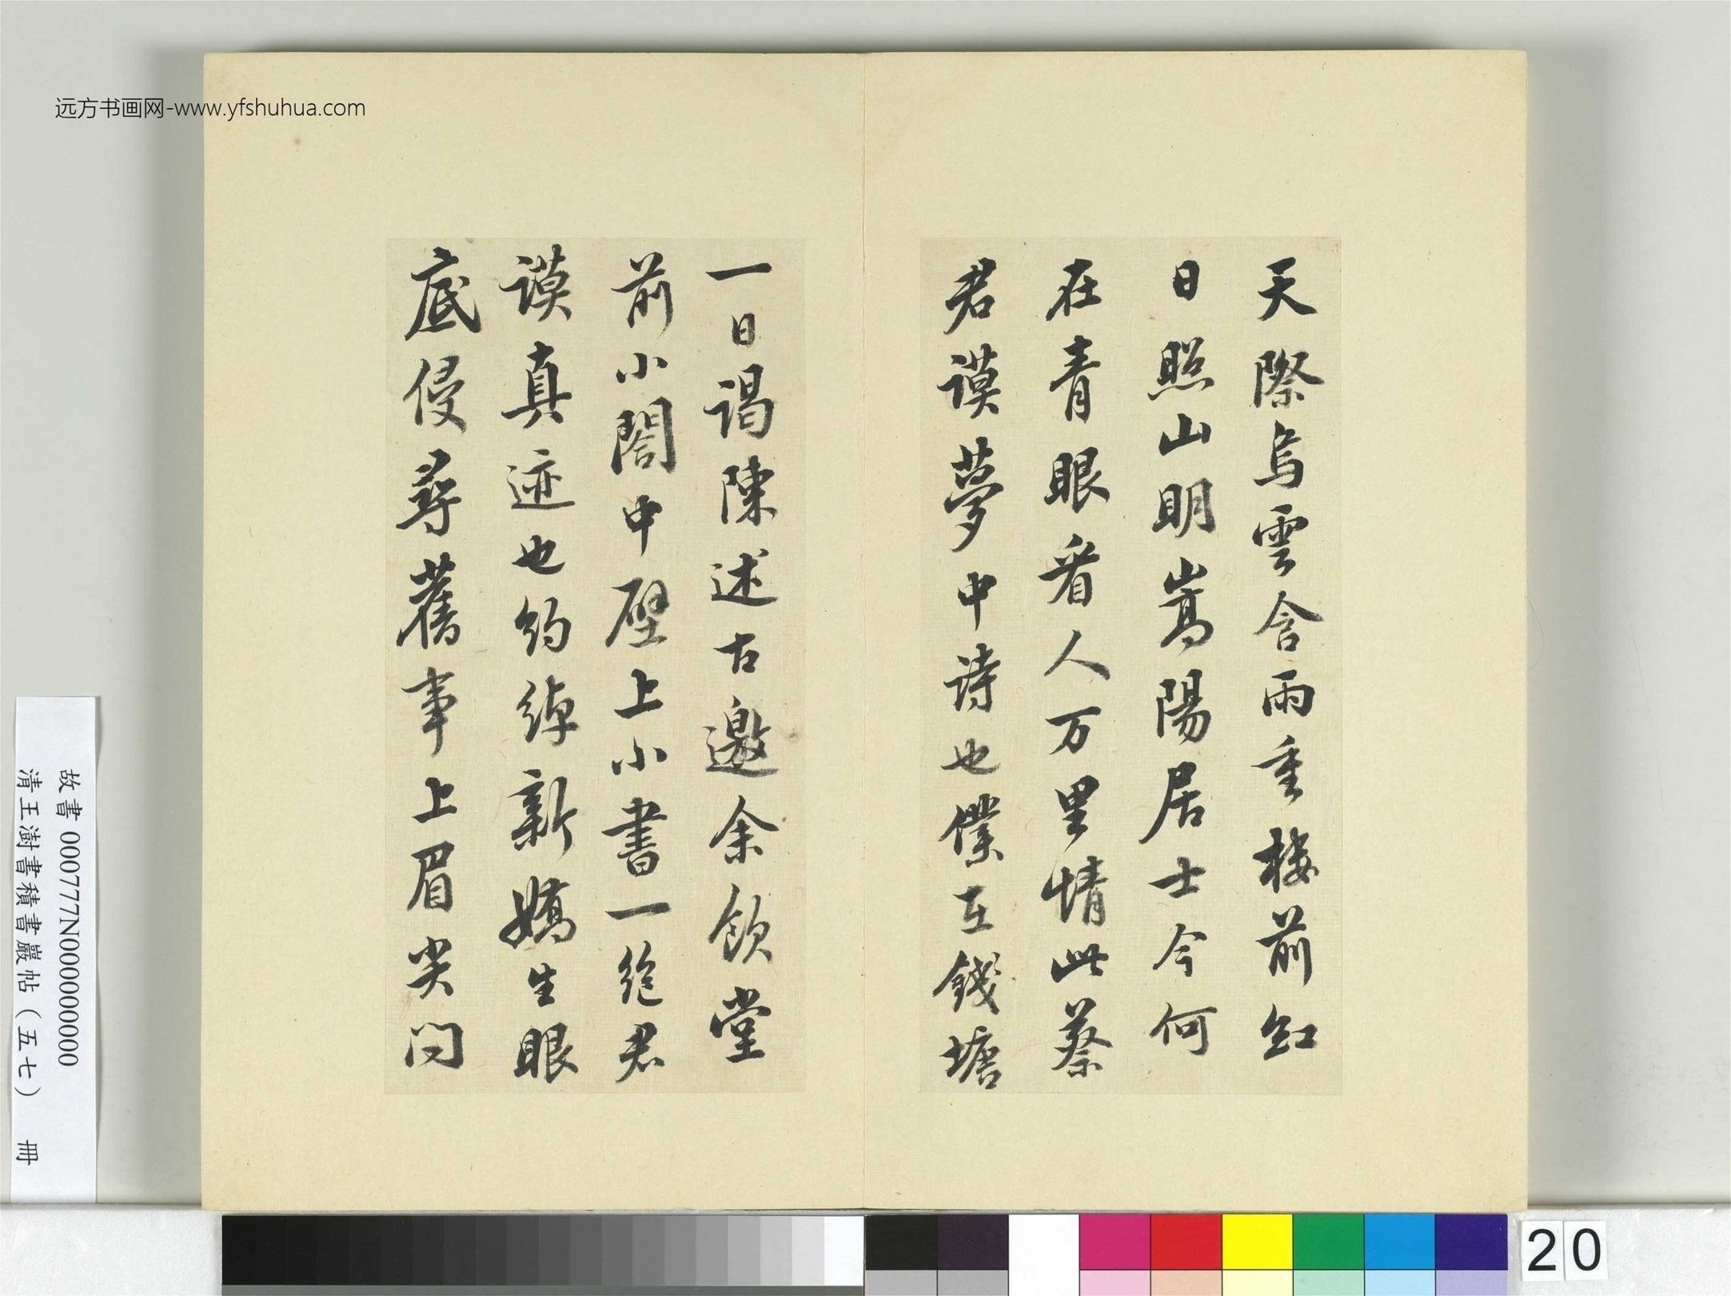 远方书画网-www.yfshuhua.com
天際烏雲含雨重樓前紅
日照山明嵩陽居士今何
在青眼看人万里情此蔡
君謨夢中詩也僕在錢塘
一日謁陳述古邀余飲堂
前小閤中壁上小書一絕君
謨真迹也約綽新嬌生眼
底侵尋舊事上眉尖问
故書 000777N000000000
清王澍書積書巖帖（五七） 冊
20